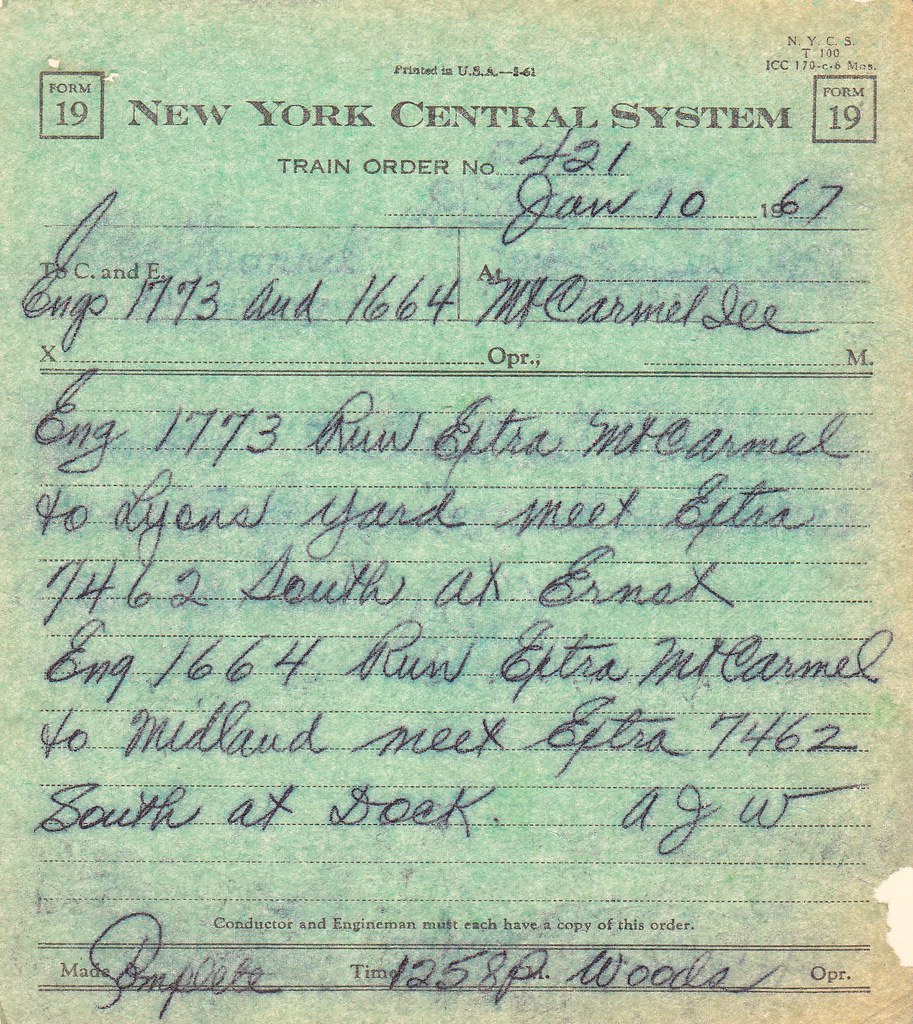 N. Y. C. S.
T 100
ICC 170-c-6 Mos.
Printed in U.S.A.—5-61
FORM 19
NEW YORK CENTRAL SYSTEM
FORM 19
TRAIN ORDER No. 421
Jan 10 1967
To C. and E. At
Engs 1773 and 1664 Mt Carmel Ills
X Opr.; M.
Eng 1773 Run Extra Mt Carmel
to Lyons Yard meet Extra
7462 South at Ernst
Eng 1664 Run Extra Mt Carmel
to Midland meet Extra 7462
South at Dock. A J W
Conductor and Engineman must each have a copy of this order.
Made Complete Time 1258 P M. Woods Opr.